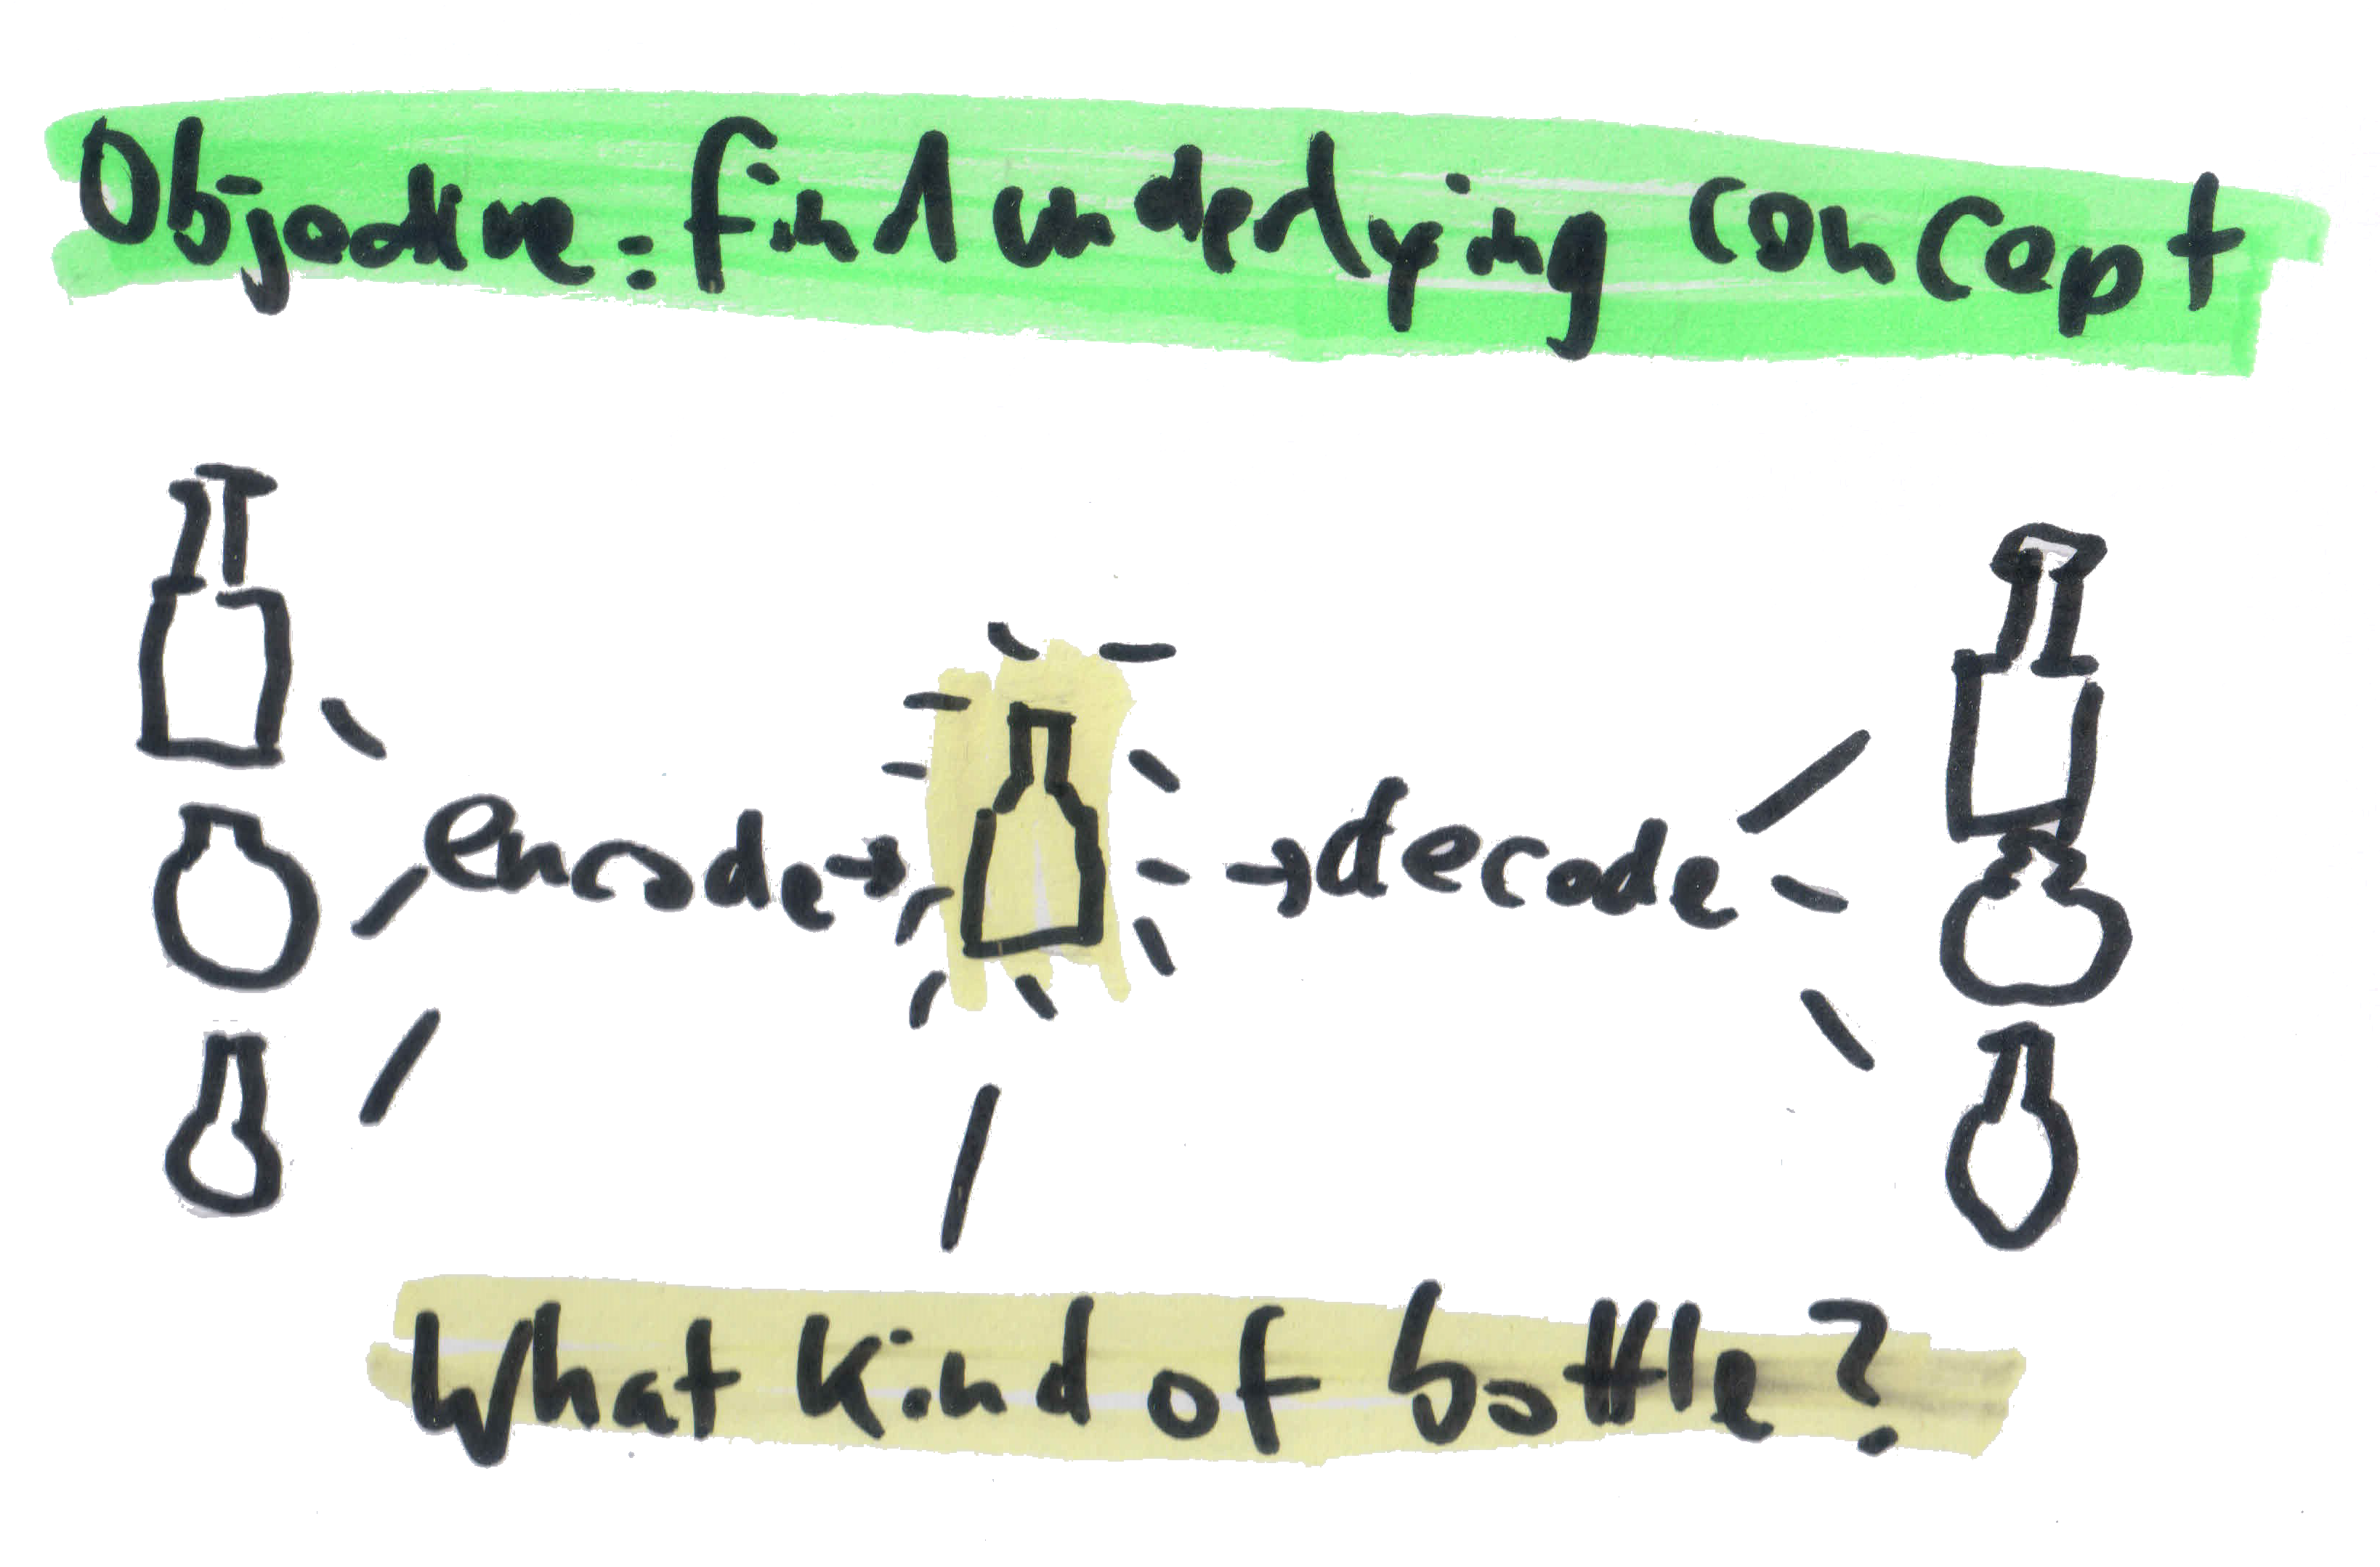 Objective: find underlying concept
encode → → decode
What kind of bottle?